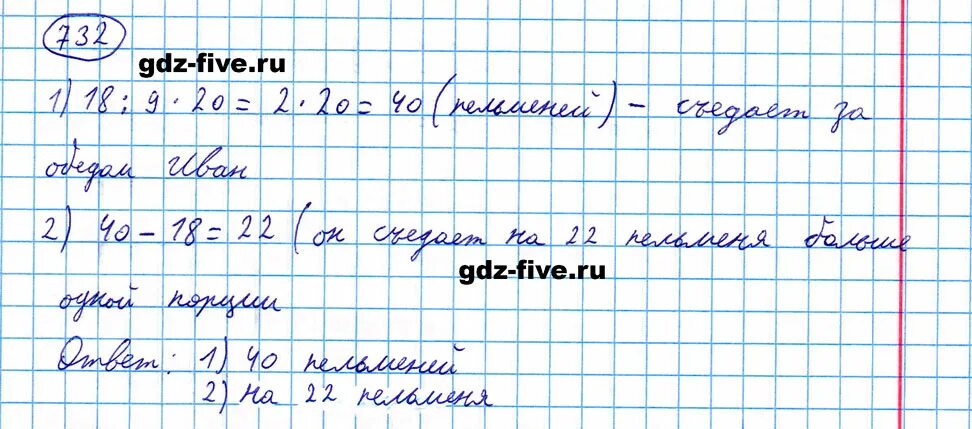 732
gdz-five.ru
1) 18 : 9 · 20 = 2 · 20 = 40 (пельменей) – съедает за
обедом Иван
2) 40 – 18 = 22 (он съедает на 22 пельменя больше
gdz-five.ru
одной порции
Ответ: 1) 40 пельменей
2) на 22 пельменя